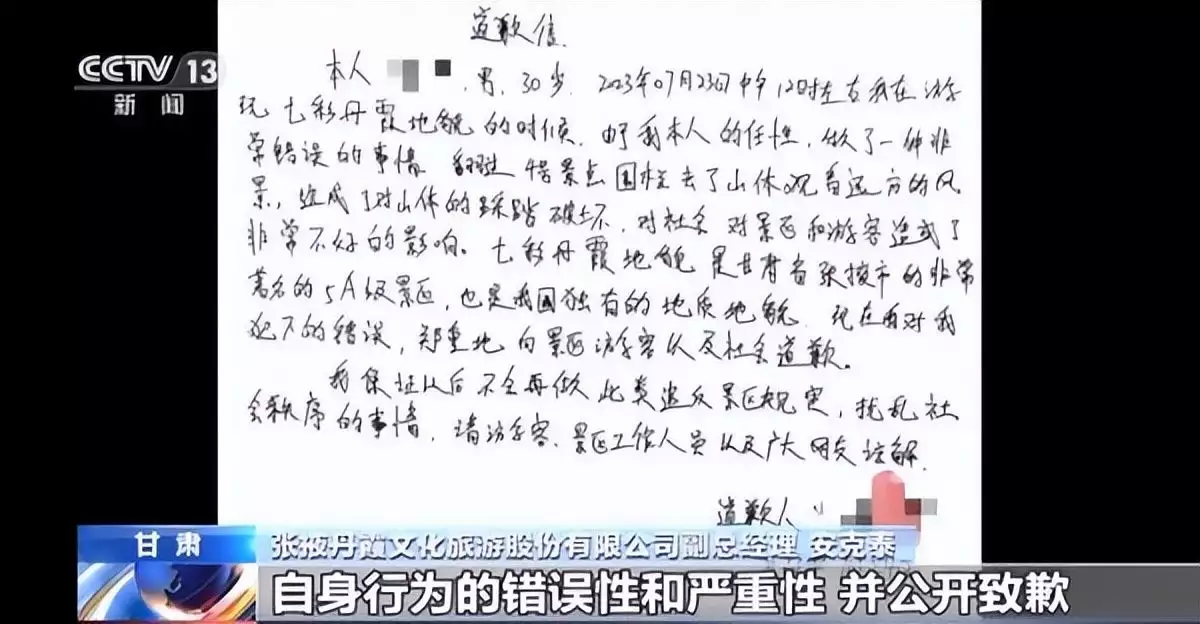 道歉信
CCTV 13
新闻
本人 ，男，30岁，2023年07月23日中午12时左右我在游
玩七彩丹霞地貌的时候，由于我本人的任性，做了一件非
常错误的事情，翻越 景点围栏去了山体观看远方的风
景，造成了对山体的踩踏破坏，对社会 对景区和游客造成了
非常不好的影响。七彩丹霞地貌是甘肃省张掖市的非常
著名的5A级景区，也是我国独有的地质地貌，现在面对我
犯下的错误，郑重地向景区游客以及社会道歉。
我保证以后不会再做此类违反景区规定，扰乱社
会秩序的事情，请游客、景区工作人员以及广大网友谅解。
道歉人
甘肃
张掖丹霞文化旅游股份有限公司副总经理 安克泰
自身行为的错误性和严重性 并公开致歉